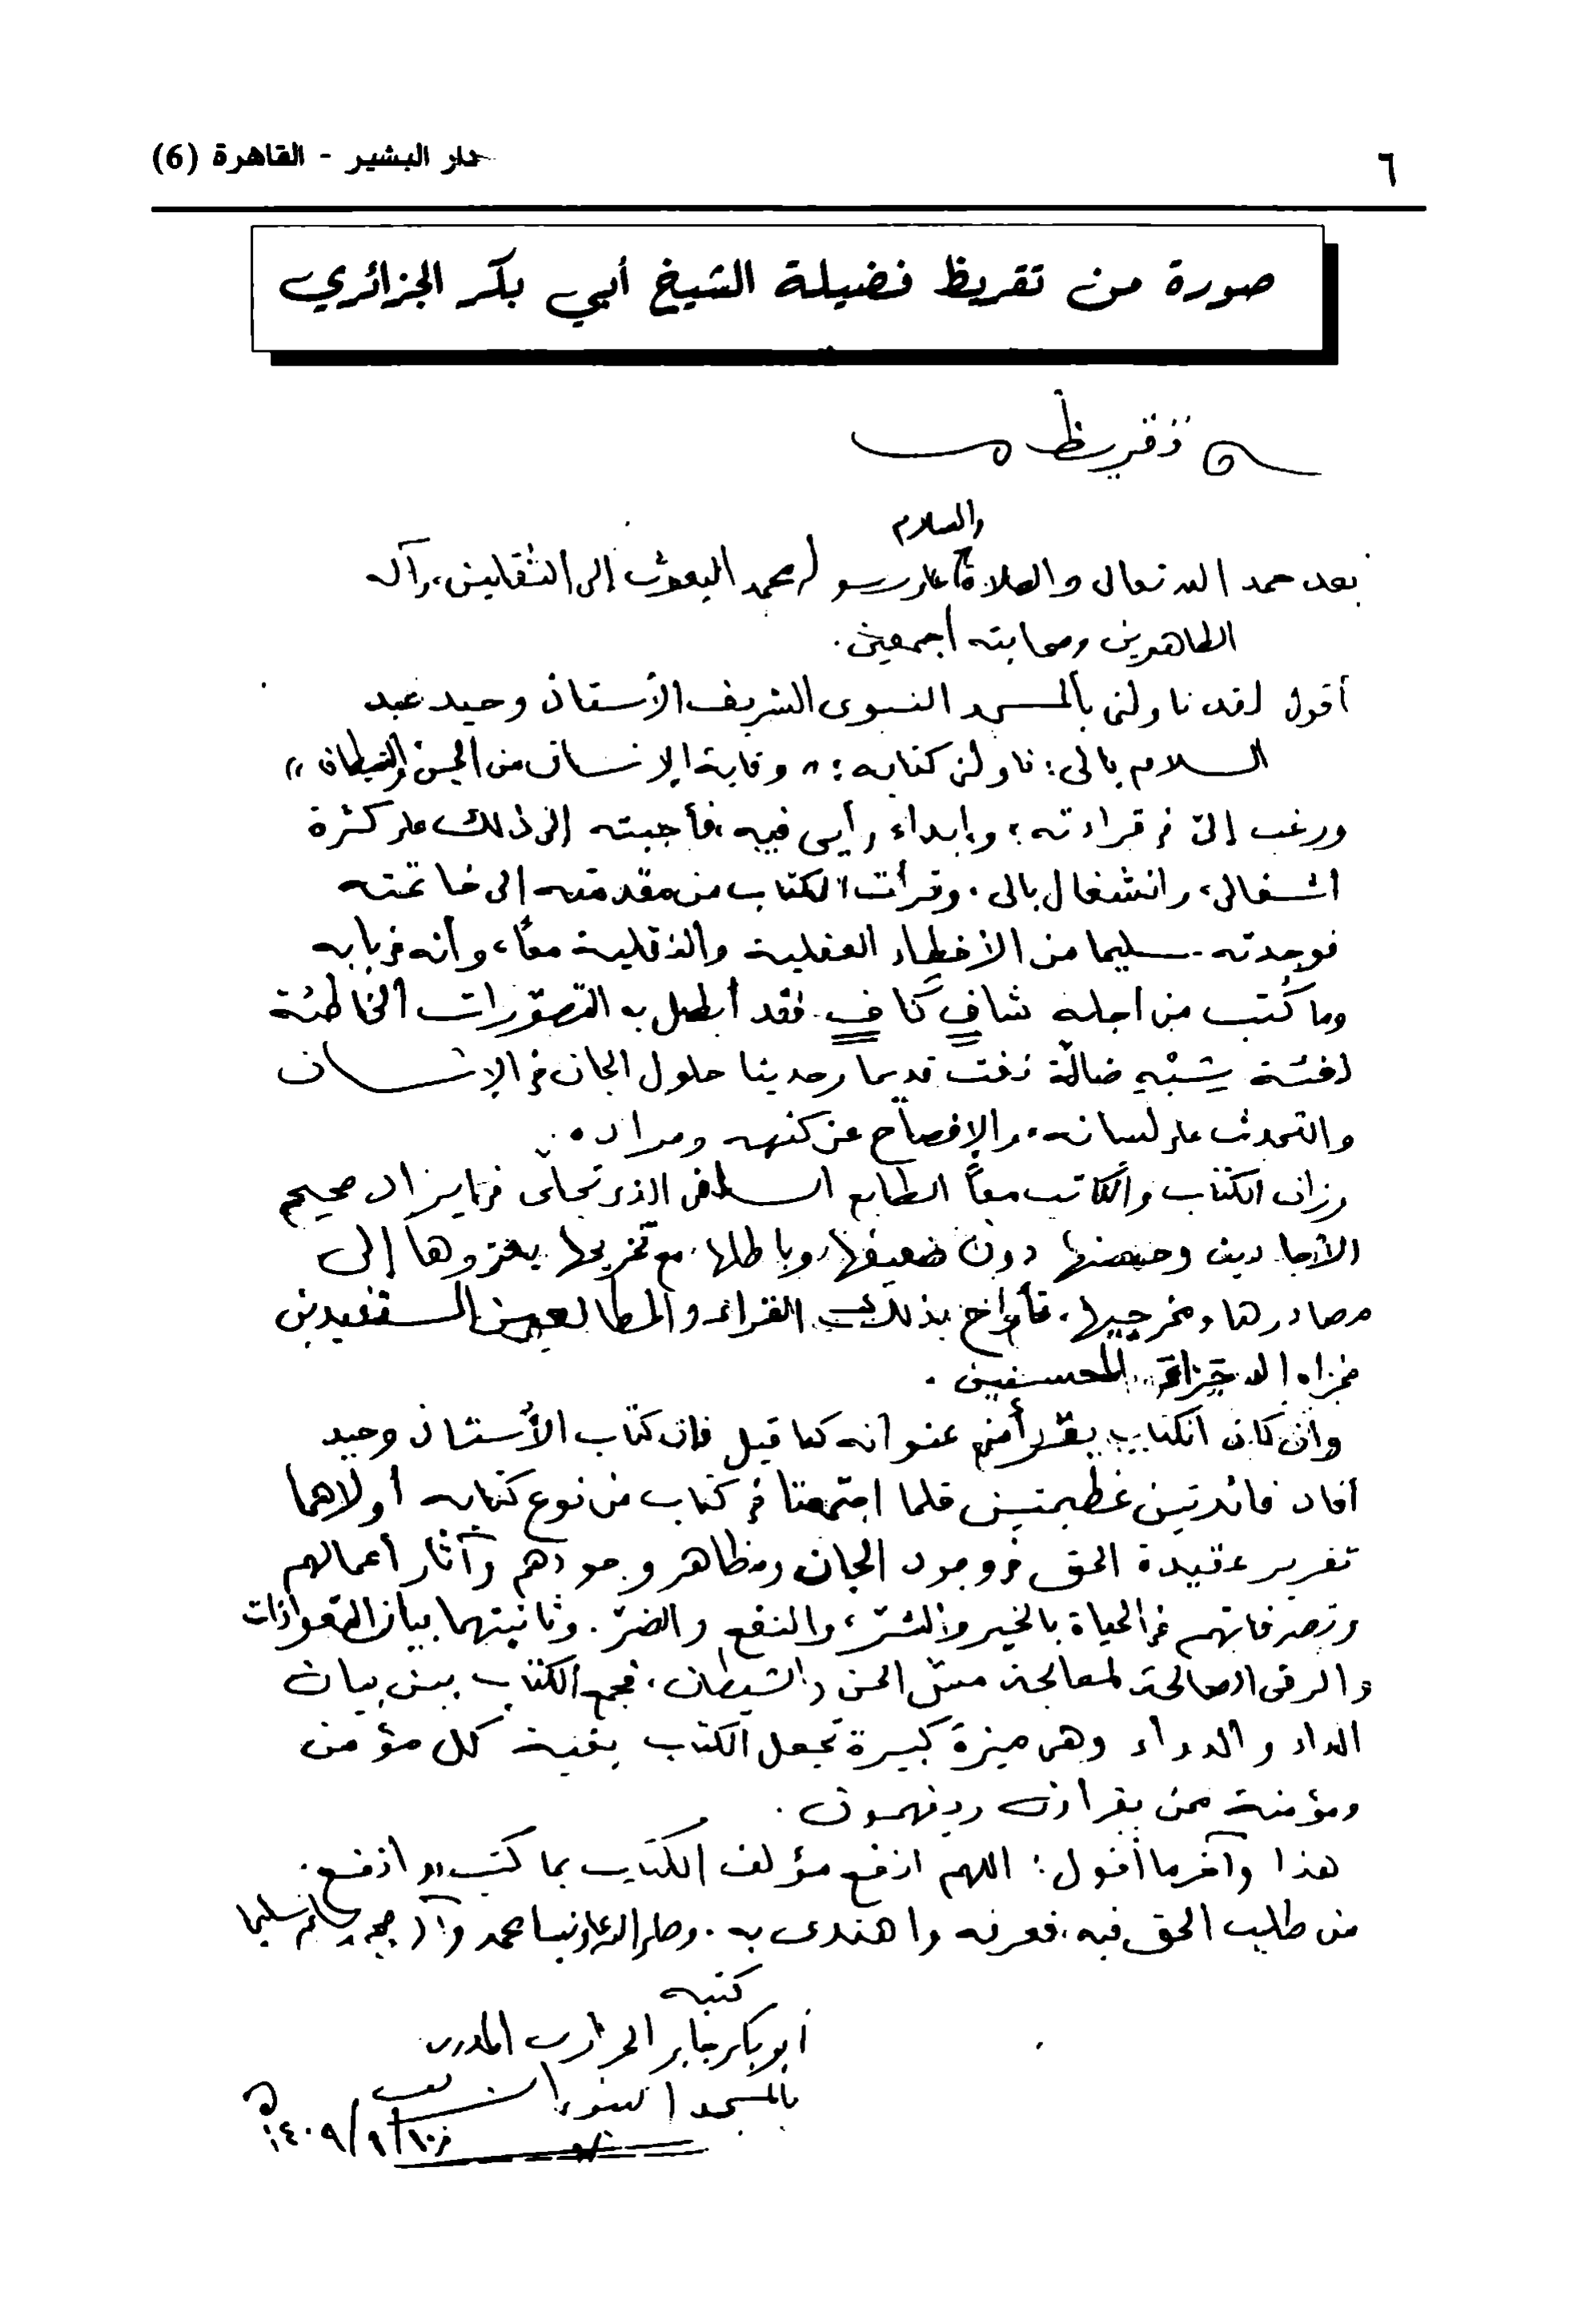 ٦
دار البشير - القاهرة (6)
صورة من تقريظ فضيلة الشيخ أبي بكر الجزائري
تقريظ
والسلام
بعد حمد الله تعالى والصلاة على رسوله محمد المبعوث إلى الثقلين، وآله
الطاهرين وصحابته أجمعين.
أقول لقد ناولني بالمسجد النبوي الشريف الأستاذ وحيد عبد
السلام بالى: ناولني كتابه: «وقاية الإنسان من الجن والشيطان»
ورغب إليّ في قراءته، وإبداء رأيي فيه، فأجبته إلى ذلك على كثرة
أشغالى، وانشغال بالى. وقرأت الكتاب من مقدمته إلى خاتمته
فوجدته سليما من الأخطاء العقلية والنقلية معاً، وأنه في بابه
وما كُتب من أجله شافٍ كافٍ فقد أبطل به التصوّرات الخاطئة
لفئة شِبْهِ ضالّة نفت قديما وحديثا حلول الجان في الإنسان
والتحدث على لسانه، والإفصاح عن كنهه ومراده.
وزان الكتاب والكاتب معاً الطابع السلفى الذى تجلّى في إيراد صحيح
الأحاديث وحسنها دون ضعيفها، وباطلها. مع تخريجها بعزوها إلى
مصادرها ومخرجيها، فأراح بذلك القراء والمطالعين المستفيدين
فجزاه الله جزاء المحسنين.
وإن كان الكتاب يقرأ من عنوانه كما قيل فإن كتاب الأستاذ وحيد
أفاد فائدتين عظيمتين قلما اجتمعتا في كتاب من نوع كتابه أولاهما
تقرير عقيدة الحق في وجود الجان ومظاهر وجودهم وآثار أعمالهم
وتصرفاتهم في الحياة بالخير والشرّ، والنفع والضرّ. وثانيتهما بيان التعوذات
والرقى الصالحة لمعالجة مسّ الجن والشيطان، فجمع الكتاب بين بيان
الداء والدواء وهى ميزة كبيرة تجعل الكتاب بغية كل مؤمن
ومؤمنة ممن يقرأون ويفهمون.
هذا وآخر ما أقول: اللهم انفع مؤلف الكتاب بما كتب، وانفع
من طلب الحق فيه، فعرفه واهتدى به. وصلى الله على نبينا محمد وآله وصحبه وسلم تسليما
كتبه
أبو بكر جابر الجزائرى المدرس
بالمسجد النبوى الشريف
في ١٠/٩/١٤٠٩ه